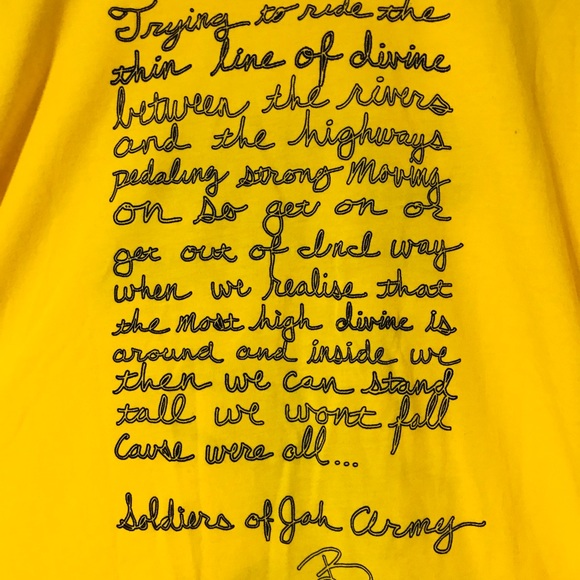 Trying to ride the
thin line of divine
between the rivers
and the highways
pedaling strong Moving
on so get on or
get out of InI way
when we realise that
the most high divine is
around and inside we
then we can stand
tall we wont fall
Cause were all...
Soldiers of Jah Army